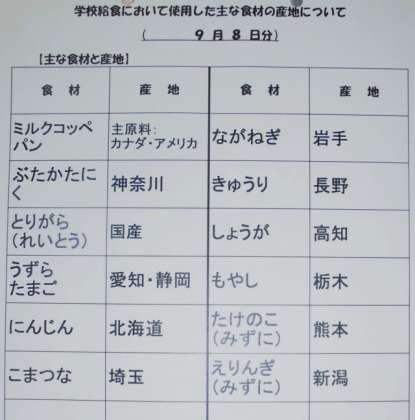 学校給食において使用した主な食材の産地について
(　9 月 8 日分)
【主な食材と産地】
食 材 産 地 食 材 産 地
ミルクコッペ
パン
主原料:
カナダ・アメリカ
ながねぎ 岩手
ぶたかたに
く
神奈川 きゅうり 長野
とりがら
(れいとう)
国産 しょうが 高知
うずら
たまご
愛知・静岡 もやし 栃木
にんじん 北海道
たけのこ
(みずに)
熊本
こまつな 埼玉
えりんぎ
(みずに)
新潟